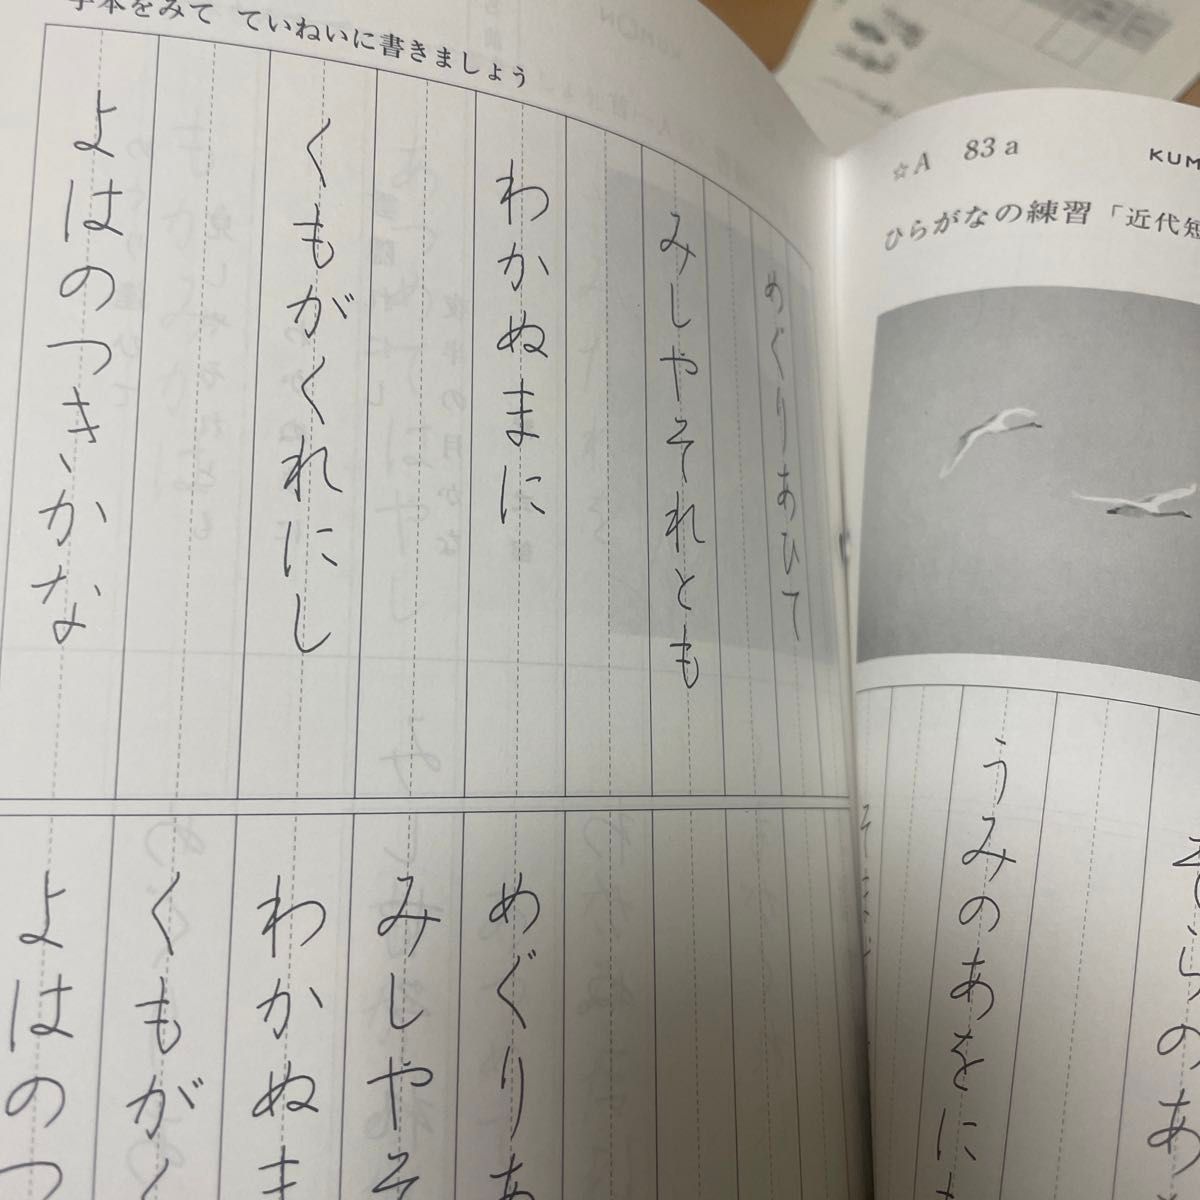 ☆A 83a
KUM
ひらがなの練習「近代短
うみのあをに
手本をみて ていねいに書きましょう
めぐりあひて
みしやそれとも
わかぬまに
くもがくれにし
よはのつきかな
めぐりあ
みしやそ
わかぬま
くもがく
よはのつ